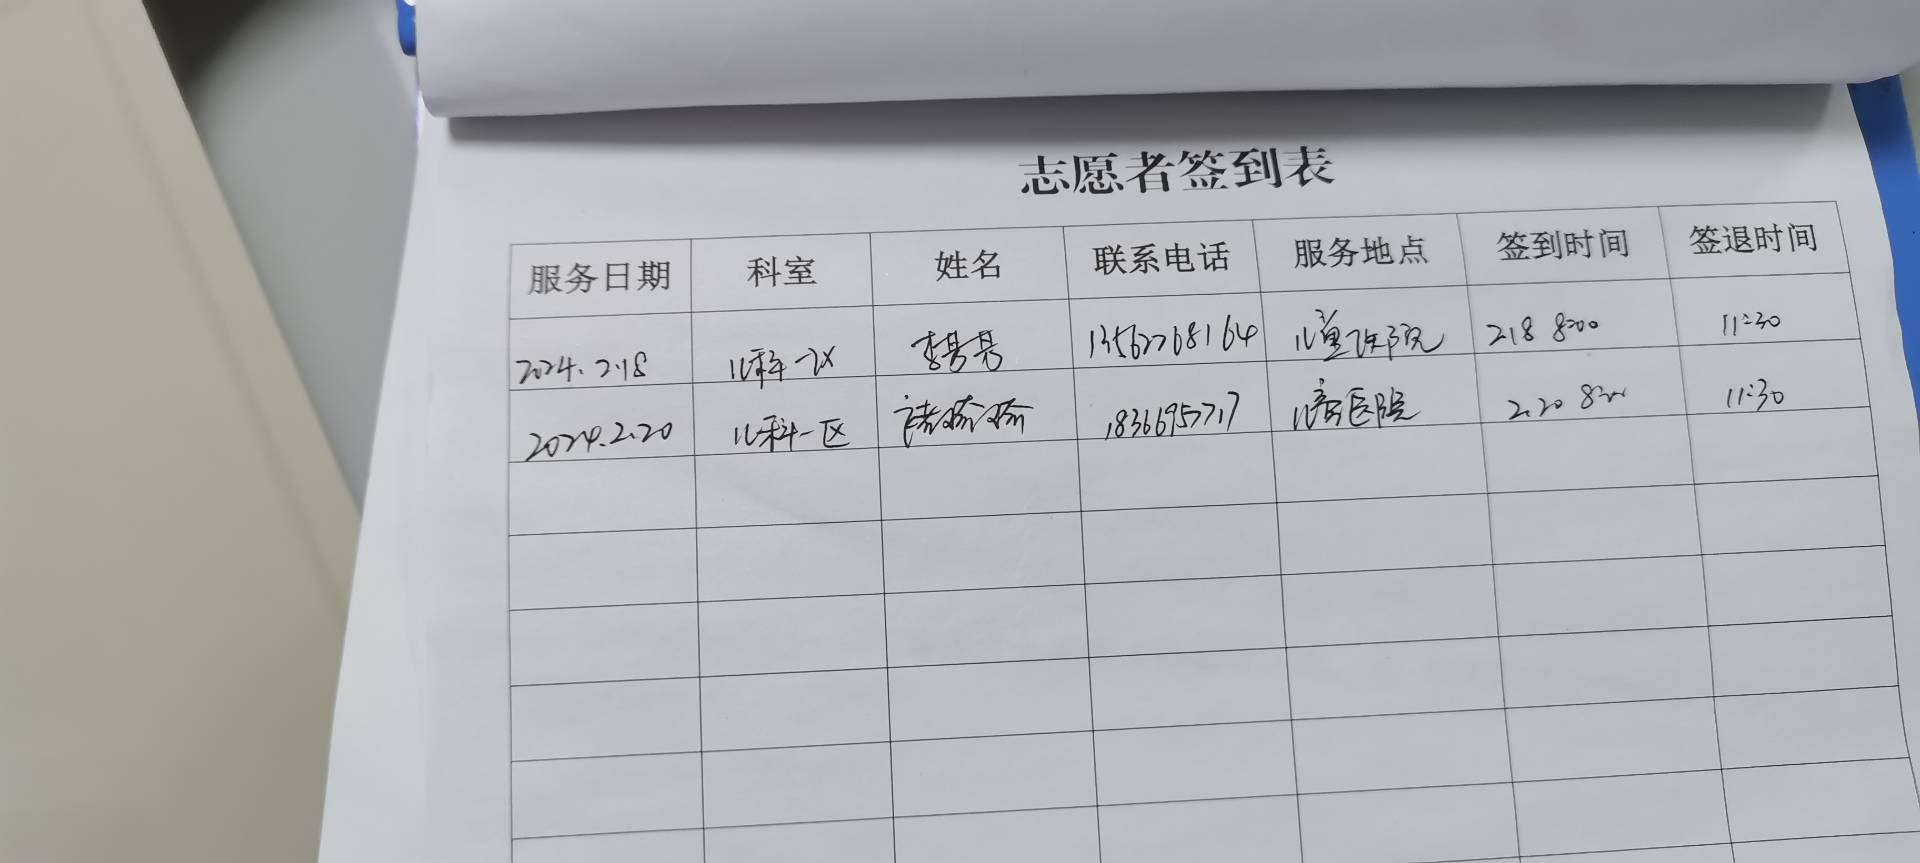 志愿者签到表
服务日期 科室 姓名 联系电话 服务地点 签到时间 签退时间
2024.2.18 儿科一区 李 13562768164 儿童医院 2.18 8:00 11:30
2024.2.20 儿科一区 18366957717 医院 2.20 8:00 11:30